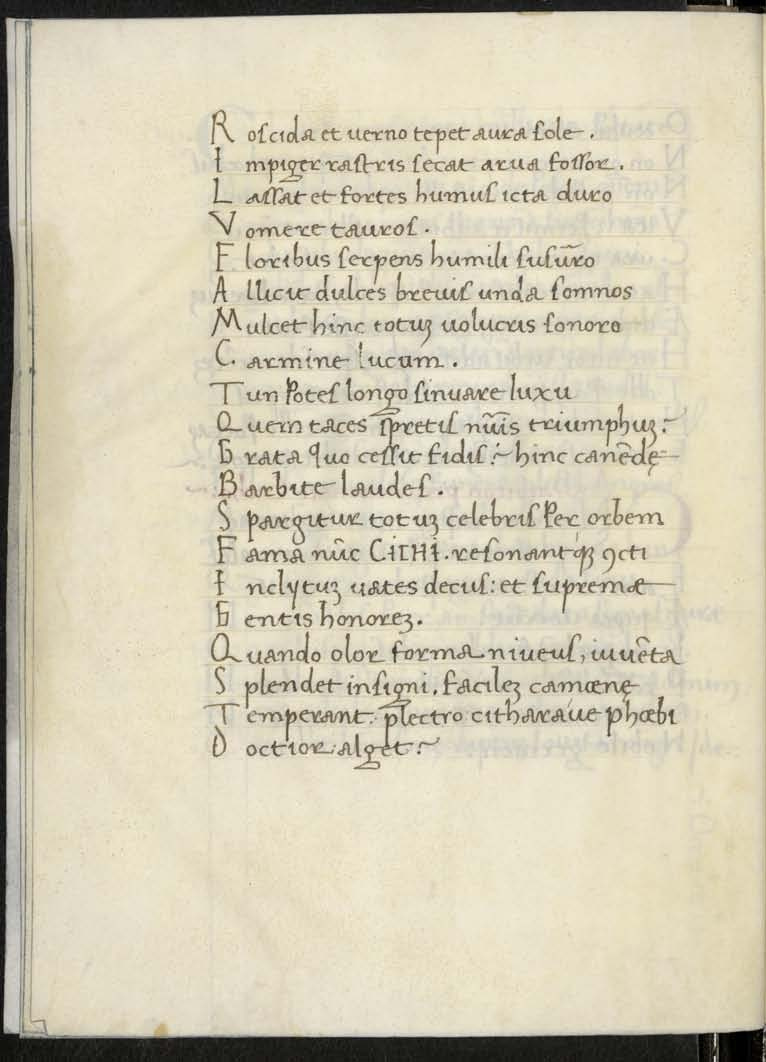 Roſcida et uerno tepet aura ſole .
Impiger raſtris ſecat arua foſſor .
Laſſat et fortes humuſ icta duro
Vomere tauroſ .
Floribus ſerpens humili ſuſūro
Allicit dulces breuiſ unda ſomnos
Mulcet hinc totuꝫ uolucris ſonoro
C. armine lucum .
Tun poteſ longo ſinuare luxu
Quem taces ſpretiſ nūīs triumphuꝫ :~
Grata quo ceſſit fidiſ :~ hinc canēdę
Barbite laudeſ .
Spargitur totuꝫ celebriſ per orbem
Fama nūc CICHI . reſonantqꝫ ꝯcti
Inclytuꝫ uates decuſ : et ſupremæ
Gentis honoreꝫ .
Quando olor forma niueuſ , iuuēta
Splendet inſigni . facileꝫ camœnę
Temperant : plectro citharaúe phœbi
Doctior alget :~